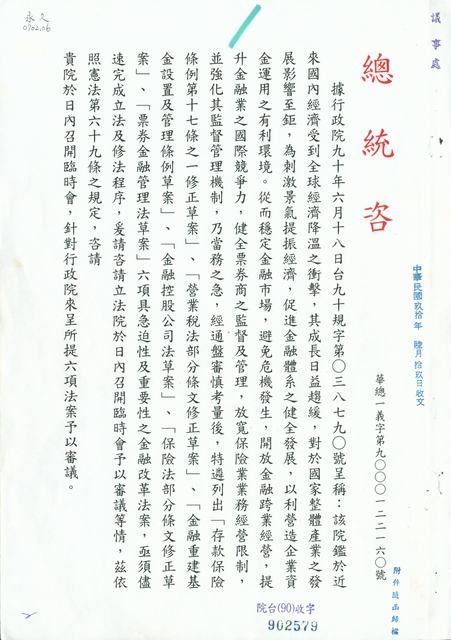 議事處
總統咨
中華民國玖拾年 陸月拾玖日收文
華總一義字第九〇〇〇一二二一六〇號
附件隨函歸檔
據行政院九十年六月十八日台九十規字第〇三八七九〇號呈稱：該院鑑於近
來國內經濟受到全球經濟降溫之衝擊，其成長日益趨緩，對於國家整體產業之發
展影響至鉅，為刺激景氣提振經濟，促進金融體系之健全發展，以利營造企業資
金運用之有利環境。從而穩定金融市場，避免危機發生，開放金融跨業經營，提
升金融業之國際競爭力，健全票券商之監督及管理，放寬保險業業務經營限制，
並強化其監督管理機制，乃當務之急，經通盤審慎考量後，特遴列出「存款保險
條例第十七條之一修正草案」、「營業稅法部分條文修正草案」、「金融重建基
金設置及管理條例草案」、「金融控股公司法草案」、「保險法部分條文修正草
案」、「票券金融管理法草案」六項具急迫性及重要性之金融改革法案，亟須儘
速完成立法及修法程序，爰請咨請立法院於日內召開臨時會予以審議等情，茲依
照憲法第六十九條之規定，咨請
貴院於日內召開臨時會，針對行政院來呈所提六項法案予以審議。
永久
0702.06
院台(90)收字
902579